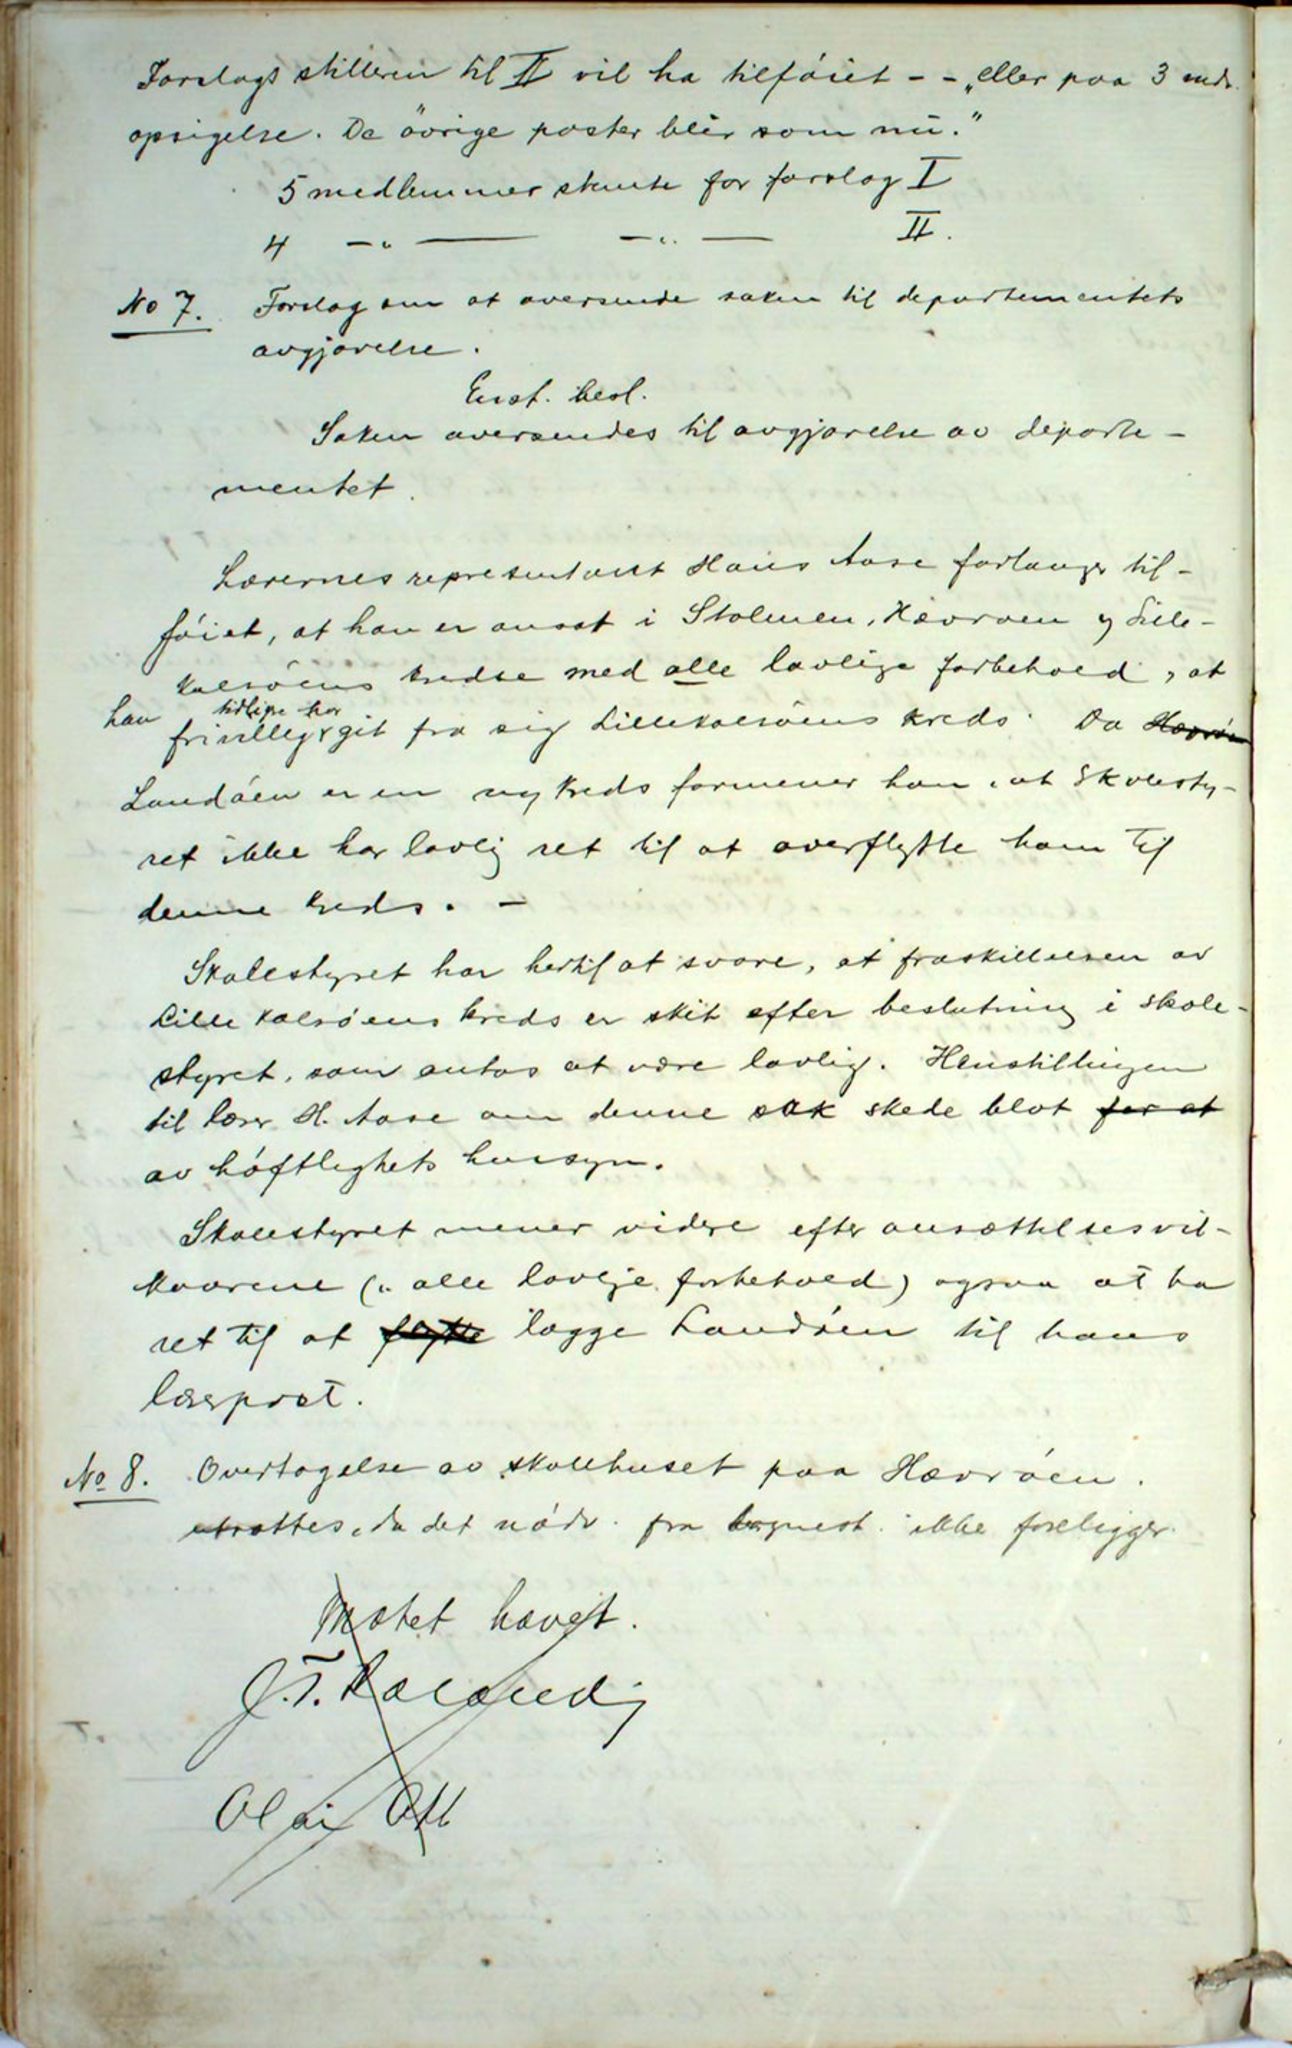 Forslags stilleren til II vil ha tilføiet - - „eller paa 3 mdr.
opsigelse. De øvrige poster blir som nu.”
5 medlemmer stemte for forslag I
4 -„- -„- II.
No 7. Forslag om at oversende saken til departementets
avgjørelse.
Enst. besl.
Saken oversendes til avgjørelse av departe-
mentet.
Lærernes representant Hans Aase forlanger til-
føiet, at han er ansat i Stolmen, Hævrøen og Lille-
kalsøens kredse med alle lovlige forbehold, at
han frivillig tidlige har git fra sig Lillekalsøens kreds. Da Hævrøen
Landøen er en ny kreds formener han, at Skolesty-
ret ikke har lovlig ret til at overflytte ham til
denne kreds. -
Skolestyret har hertil at svare, at fraskillelsen av
Lille Kalsøens kreds er skit efter beslutning i skole-
styret, som antas at være lovlig. Henstillingen
til lærer H. Aase om denne sak skede blot for at
av høftlighets hensyn.
Skolestyret mener videre efter ansættelsesvil-
kaarene („alle lovlje forbehold) ogsaa at ha
ret til at flytte lægge Landøen til hans
lærerpost.
No 8. Overtagelse av skolehuset paa Hævrøen.
utsættes, da det nødv. fra ikke foreligger.
Møtet hævet.
J. T.
Olai